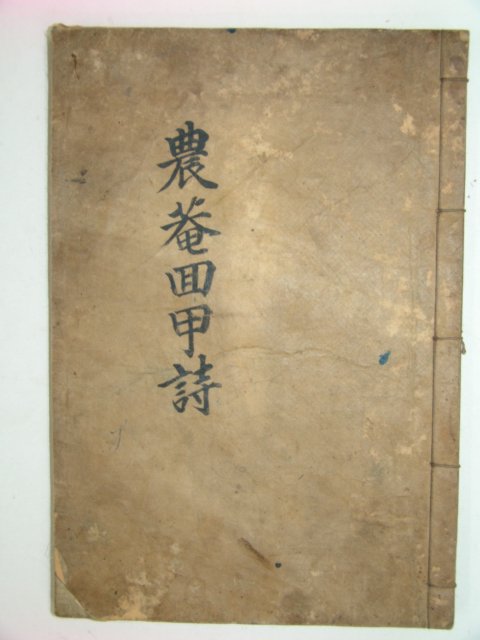 農菴回甲詩